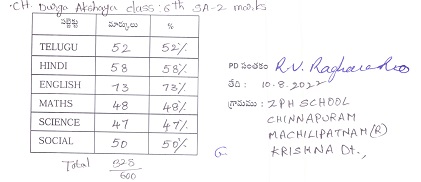 CH. Durga Akshaya class: 6th SA-2 marks
సబ్జెక్టు మార్కులు %
TELUGU 52 52%
HINDI 58 58%
ENGLISH 73 73%
MATHS 48 48%
SCIENCE 47 47%
SOCIAL 50 50%
Total 328/600
PD సంతకం R.V. Raghava Rao
తేది : 10.8.2022
గ్రామము : ZPH SCHOOL
CHINNAPURAM
MACHILIPATNAM (R)
KRISHNA Dt.,